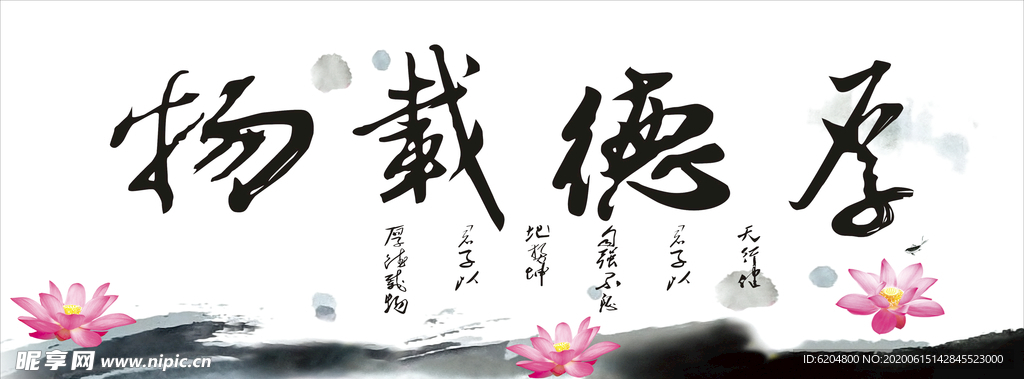 厚德载物
天行健
君子以
自强不息
地势坤
君子以
厚德载物
昵享网 www.nipic.cn
ID:6204800 NO:20200615142845523000